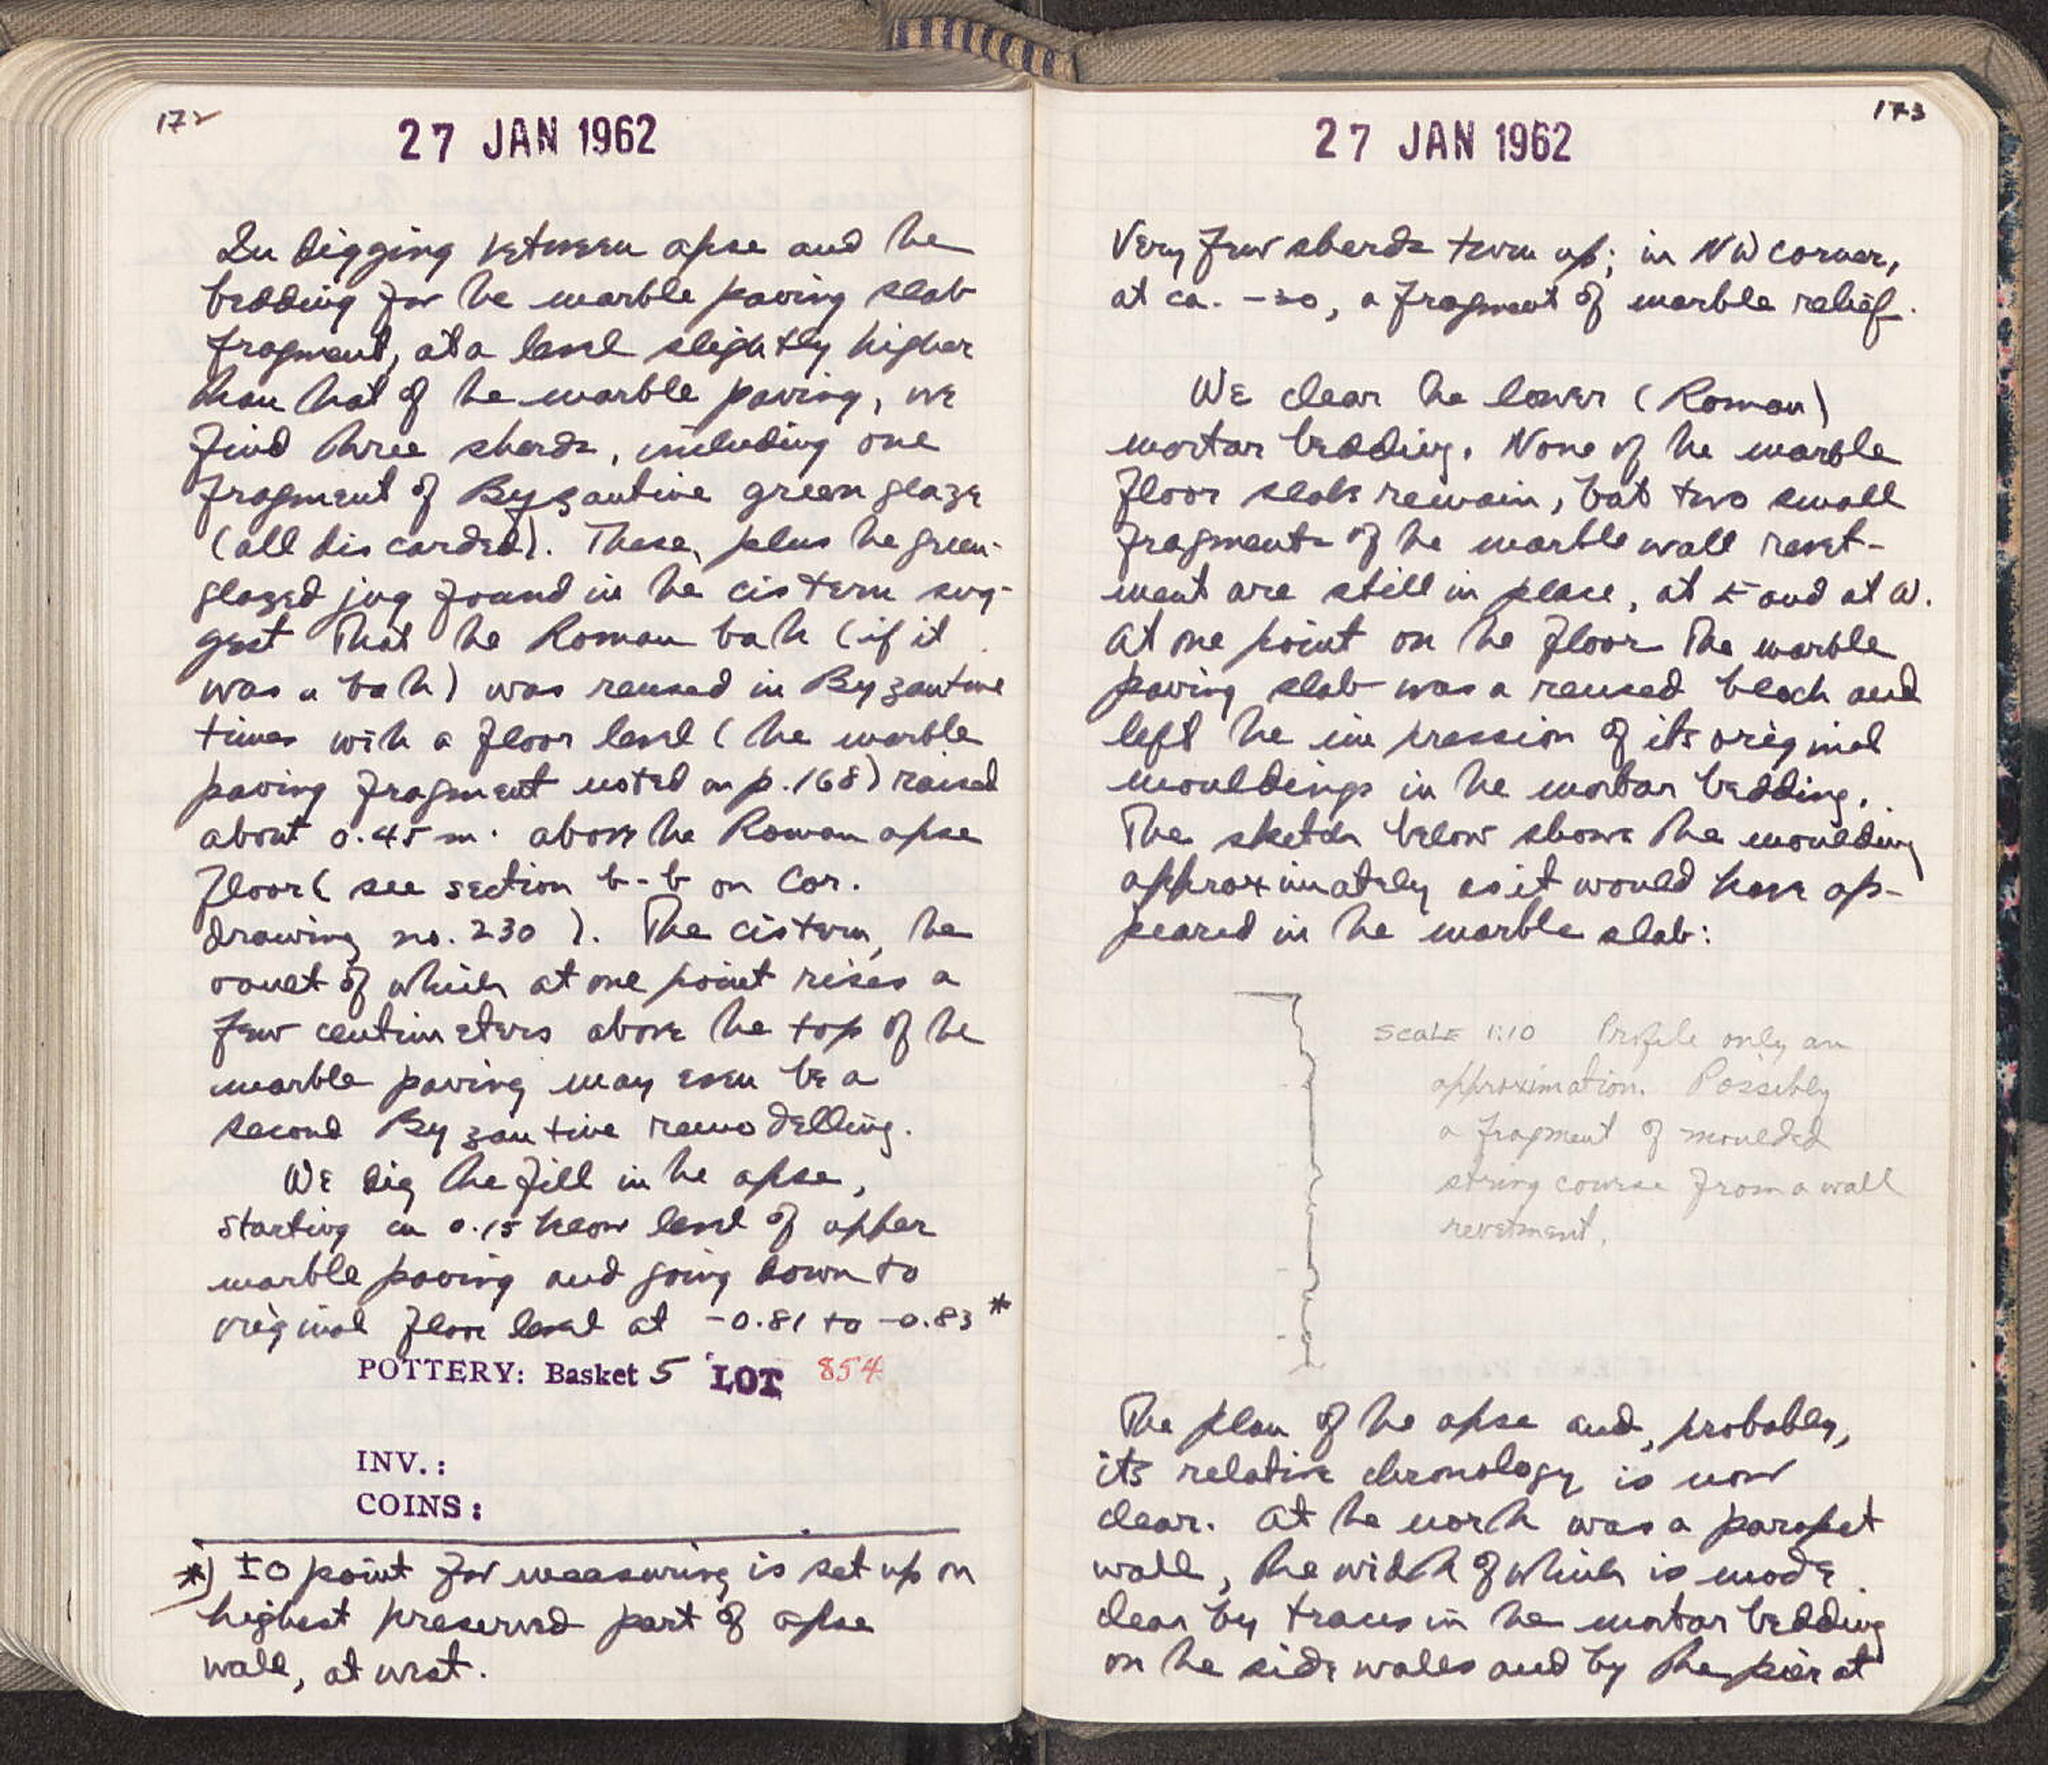 172
27 JAN 1962
In digging between apse and the
bedding for the marble paving slab
fragment, at a level slightly higher
than that of the marble paving, we
find three sherds, including one
fragment of Byzantine green glaze
(all discarded). These, plus the green-
glazed jug found in the cistern sug-
gest that the Roman bath (if it
was a bath) was reused in Byzantine
times with a floor level (the marble
paving fragment noted on p. 168) raised
about 0.45 m. above the Roman apse
floor (see section b-b on Cor.
drawing no. 230 ). The cistern, the
vault of which at one point rises a
few centimeters above the top of the
marble paving may even be a
second Byzantine remodelling.
We dig the fill in the apse,
starting ca 0.15 below level of upper
marble paving and going down to
original floor level at -0.81 to -0.83 *
POTTERY: Basket 5 LOT 854
INV.:
COINS:
*) ±0 point for measuring is set up on
highest preserved part of apse
wall, at west.
173
27 JAN 1962
Very few sherds turn up; in NW corner,
at ca. -20, a fragment of marble relief.
We clear the lower (Roman)
mortar bedding. None of the marble
floor slabs remain, but two small
fragments of the marble wall revet-
ment are still in place, at E and at W.
At one point on the floor the marble
paving slab was a reused block and
left the impression of its original
mouldings in the mortar bedding.
The sketch below shows the moulding
approximately as it would have ap-
peared in the marble slab:
Scale 1:10 Profile only an
approximation. Possibly
a fragment of moulded
string course from a wall
revetment.
The plan of the apse and, probably,
its relative chronology is now
clear. At the north was a parapet
wall, the width of which is made
clear by traces in the mortar bedding
on the side walls and by the pier at